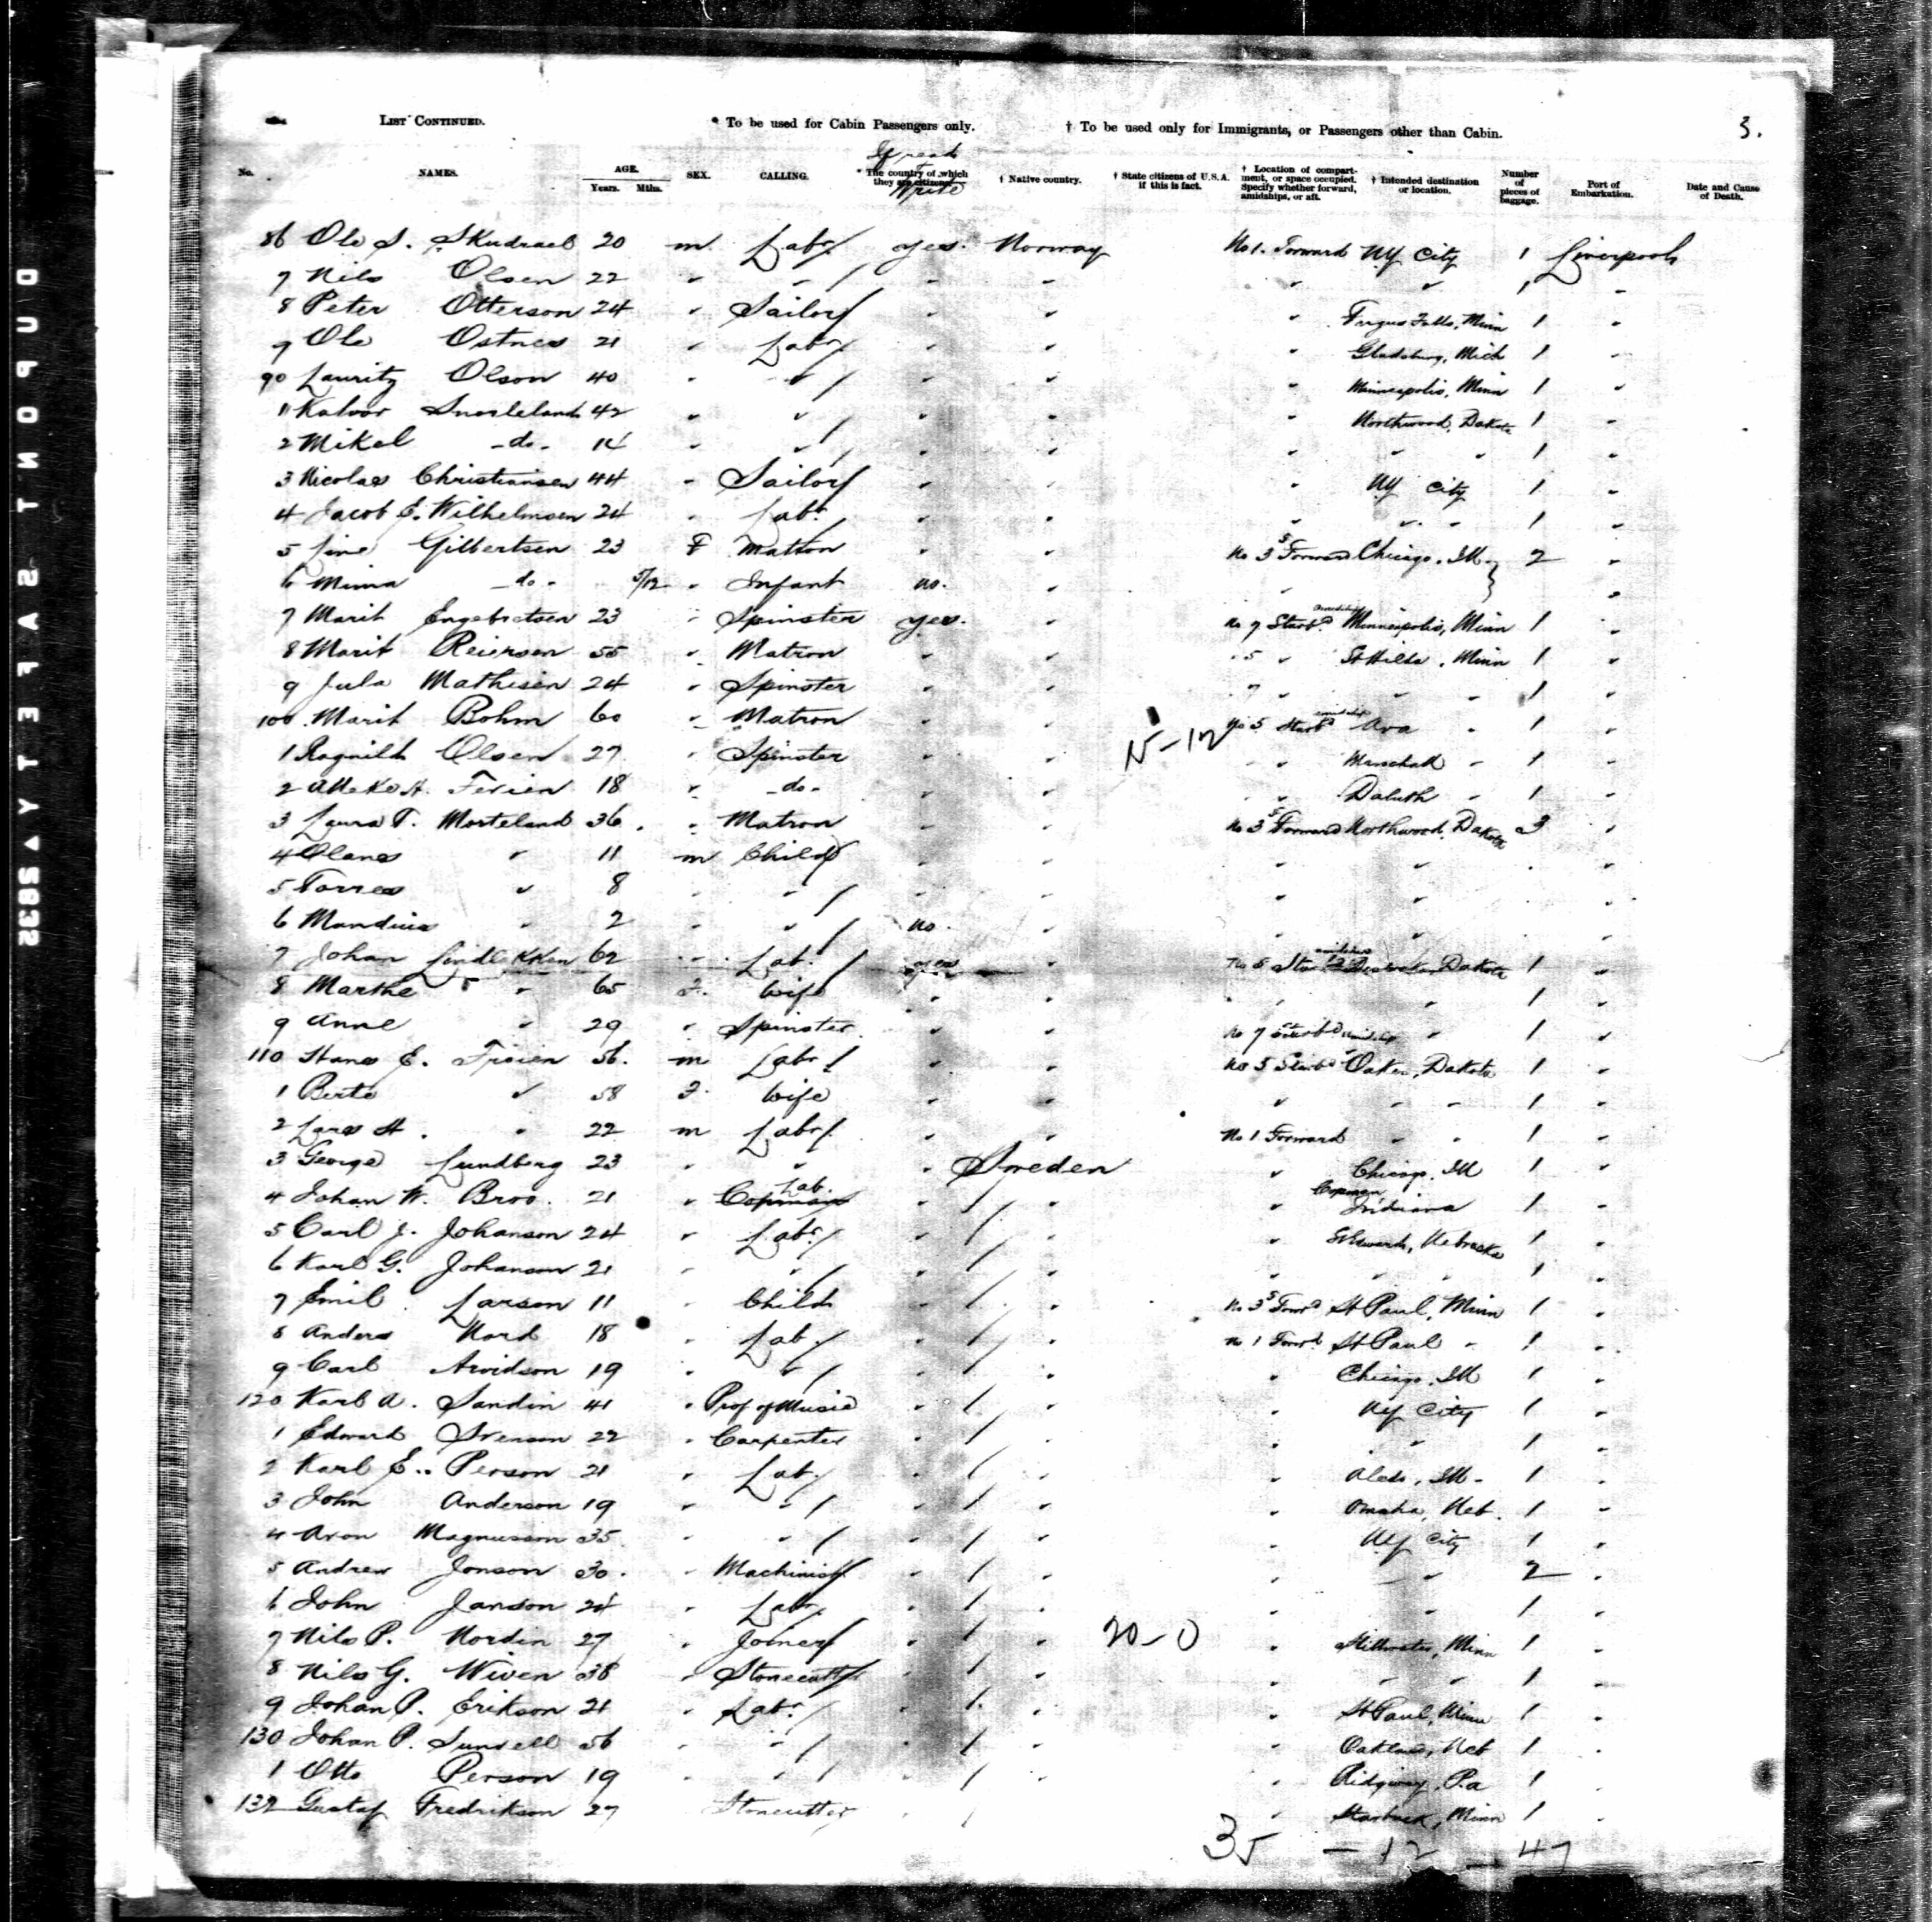 3.
LIST CONTINUED. * To be used for Cabin Passengers only. † To be used only for Immigrants, or Passengers other than Cabin.
If read
No. NAMES. AGE. Years. Mths. SEX. CALLING. * The country of which they are citizens. Write † Native country. † State citizens of U.S.A. if this is fact. † Location of compartment, or space occupied. Specify whether forward, amidships, or aft. † Intended destination or location. Number of pieces of baggage. Port of Embarkation. Date and Cause of Death.
86 Ole S. 20 m Labr yes. Norway No 1. Forward NY City 1 Liverpool
7 Nils Olsen 22 " " " " " " 1 "
8 Peter Otterson 24 " Sailor " " " Fergus Falls, Minn 1 "
9 Ole Ostnes 21 " Labr " " " Mich 1 "
90 Lauritz Olson 40 " " " " " Minneapolis, Minn 1 "
11 42 " " " " " Northwood, Dakota 1 "
2 Mikel -do- 14 " " " " " " " 1 "
3 Nicolas Christiansen 44 " Sailor " " " NY City 1 "
4 Jacob E. Wilhelmsen 24 " Labr " " " " " 1 "
5 Line Gilbertsen 23 F Matron " " No 3 Forward Chicago, Ill 2 "
6 Minna -do- 5/12 " Infant no. " " "
7 Marit Engebretsen 23 " Spinster yes. " No 7 Starbd Minneapolis, Minn 1 "
8 Marit Reiersen 55 " Matron " " " 5 " St Hilda, Minn 1 "
9 Jula Mathisen 24 " Spinster " " " 7 " " " 1 "
100 Marit Bohm 60 " Matron " " No 5 Starbd Ava " 1 "
1 Ragnild Olsen 27 " Spinster " " " " Marschall " 1 "
2 18 " -do- " " " " Duluth " 1 "
3 Laura T. Morteland 36. " Matron " " No 3 Forward Northwood, Dakota 3 "
4 " 11 m Child " " " " "
5 Torres " 8 " " " " " " "
6 " 2 " " no " "
7 Johan 62 " Lab. yes " No 5 Dakota 1 "
8 Marthe " 65 F. Wife " " " " " 1 "
9 Anne " 29 " Spinster " " No 7 Starbd " 1 "
110 Hans E. 56. m Labr " " No 5 Starbd Oakes, Dakota 1 "
1 " 58 F. Wife " " " " " 1 "
2 Lars H. " 22 m Labr " " No 1 Forward " " 1 "
3 George Lundberg 23 " " " Sweden " Chicago, Ill 1 "
4 Johan W. Broo. 21 " Lab. " " " " Indiana 1 "
5 Carl J. Johanson 24 " Labr " " " " Nebraska 1 "
6 Karl G. Johanson 21 " " " " " " " " 1 "
7 Emil Larson 11 " Child " " " No 3 Forwd St Paul, Minn 1 "
8 Anders Nord 18 " Lab " " " No 1 Forwd St Paul " 1 "
9 Carl Arvidson 19 " " " " " " Chicago, Ill 1 "
120 Karl A. Sandin 41 " Prof of Music " " " " NY City 1 "
1 Edward Svenson 22 " Carpenter " " " " " 1 "
2 Karl E. Person 21 " Lab. " " " " Aledo, Ill. 1 "
3 John Anderson 19 " " " " " " Omaha, Neb. 1 "
4 Aron Magnusson 35 " " " " " " NY City 1 "
5 Andrew Jonson 30. " Machinist " " " " " " 2 "
6 John Janson 24 " Labr " " " " " 1 "
7 Nils P. Nordin 27 " Joiner " " " 20-0 " Stillwater, Minn 1 "
8 Nils G. Wiven 38 " Stonecutter " " " " " " 1 "
9 Johan P. Erikson 21 " Labr " " " " St Paul, Minn 1 "
130 Johan P. Sunsell 56 " " " " " " Oakland, Neb 1 "
1 Otto Person 19 " " " " " " Ridgway, Pa 1 "
132 Gustaf Fredrikson 27 Stonecutter " " " Starbuck, Minn 1 "
35 - 12 - 47
DUPONT SAFETY 5532